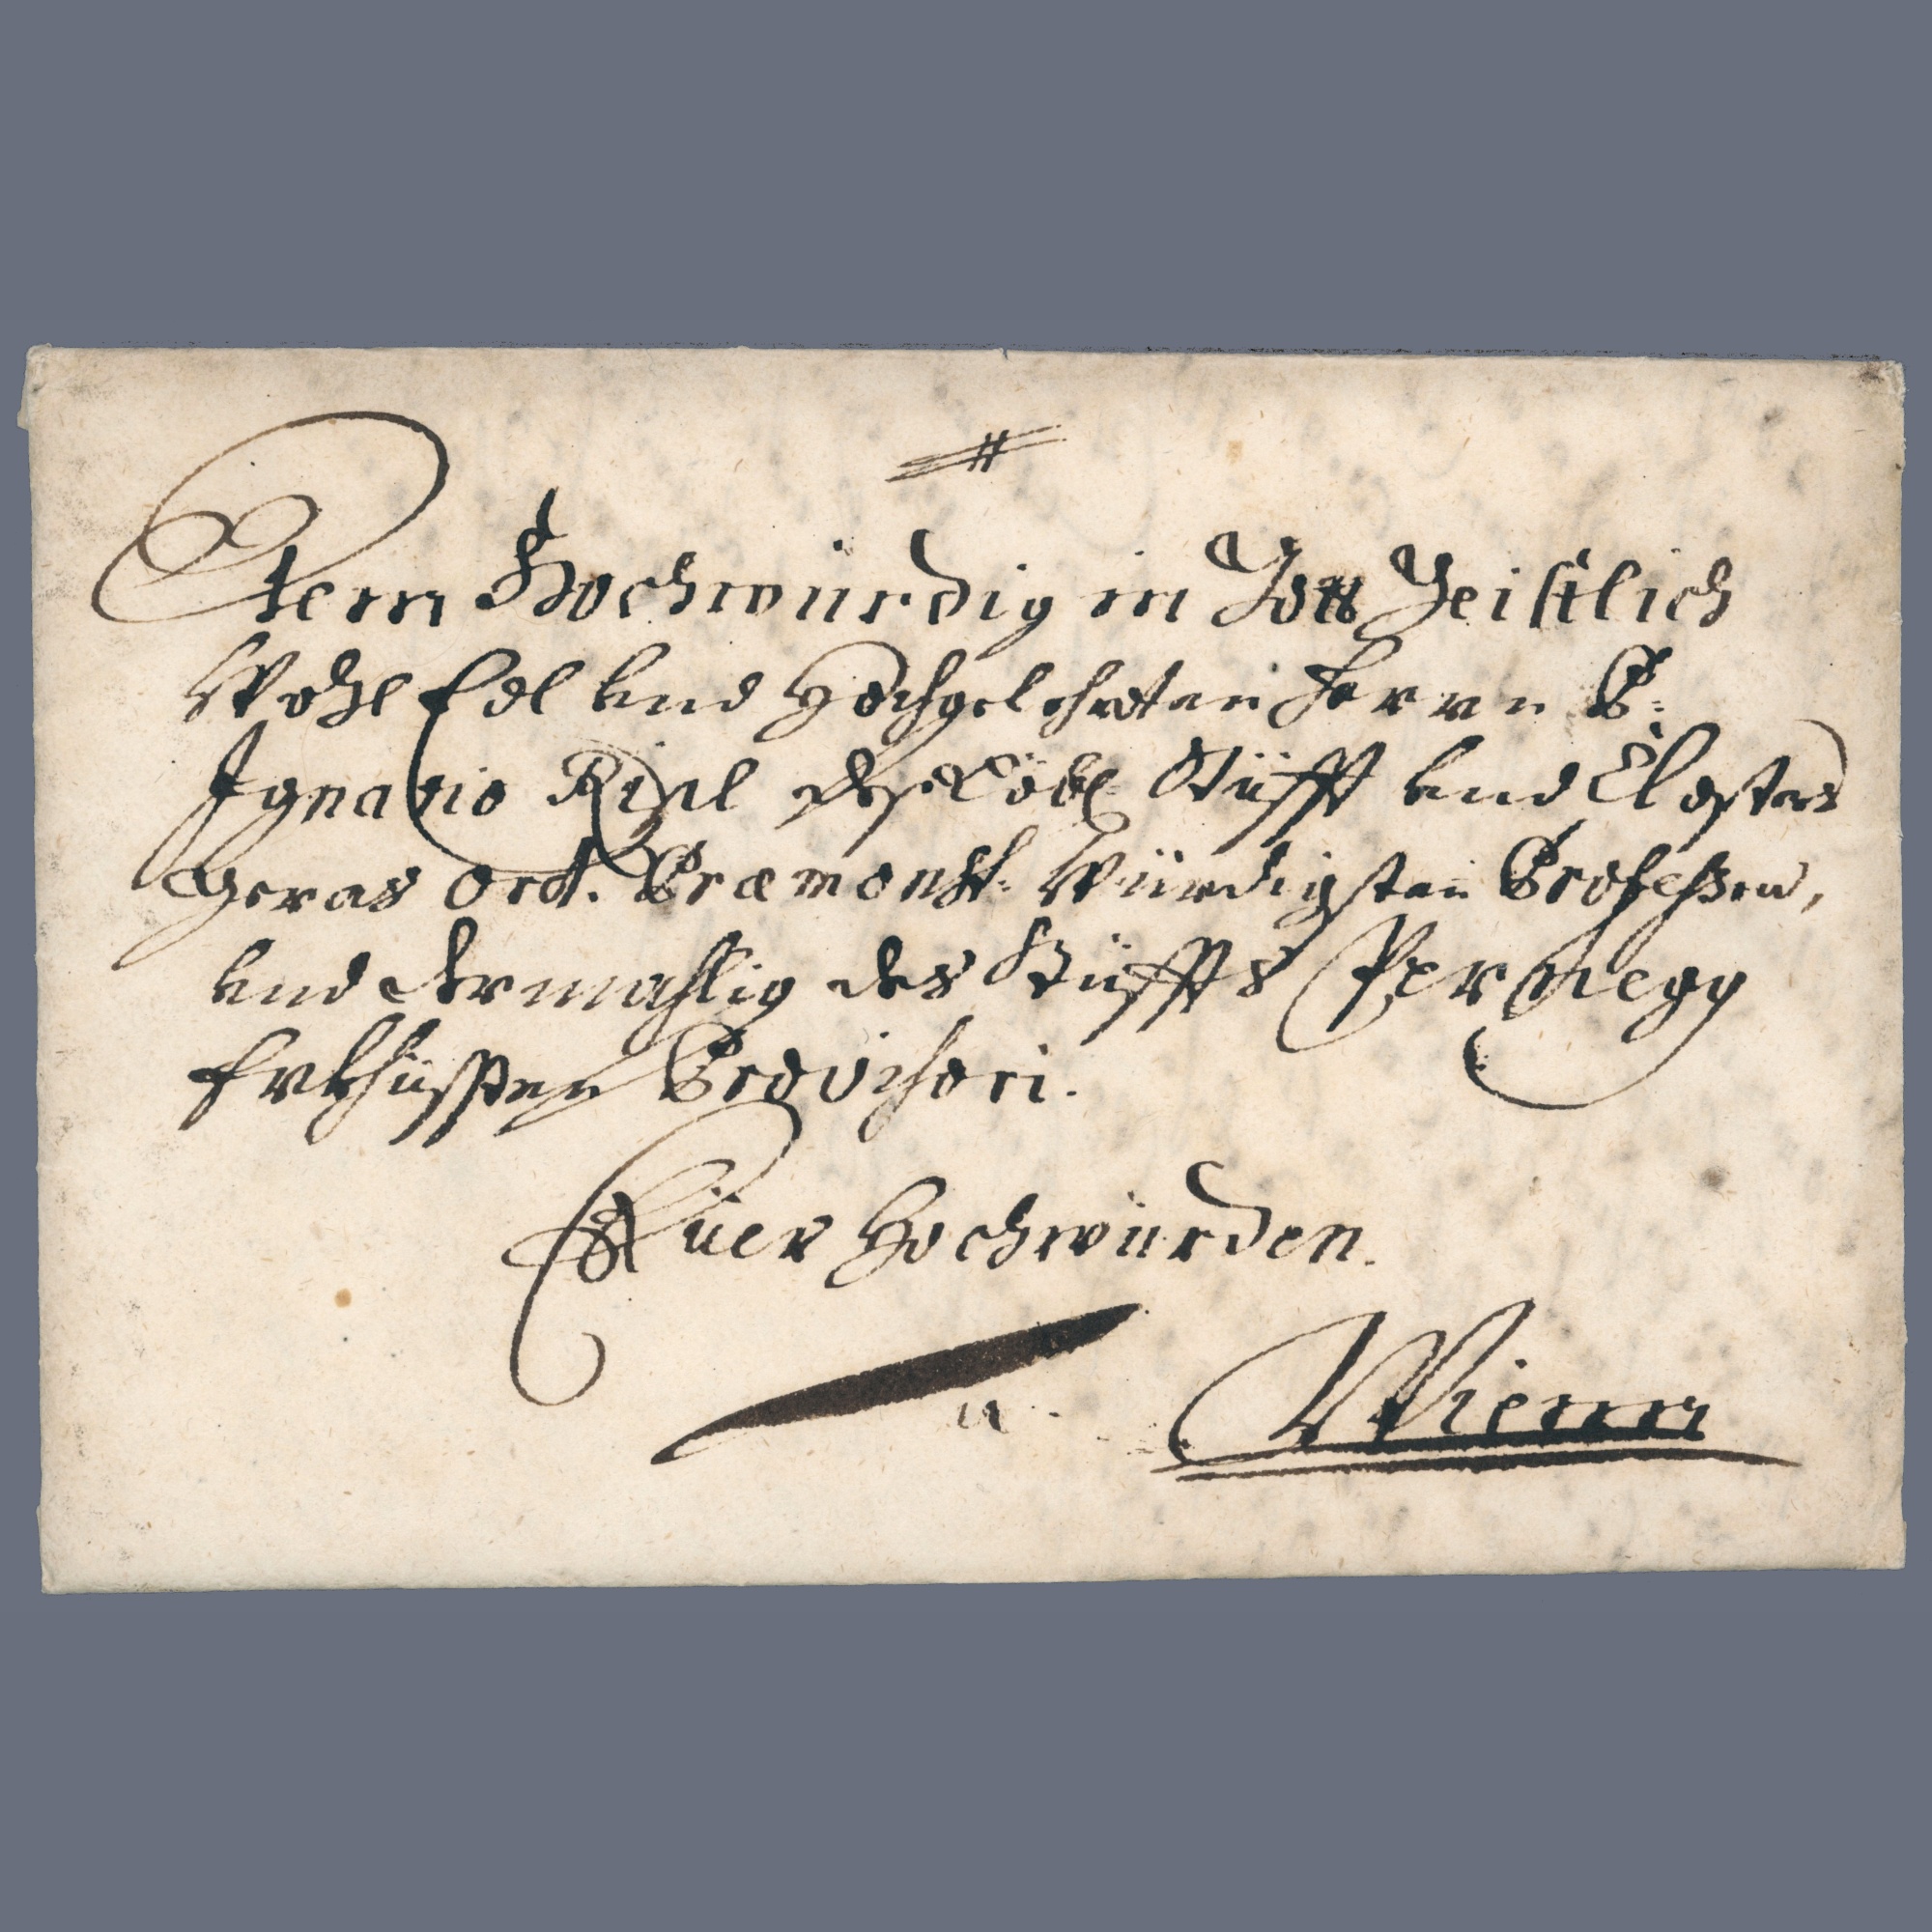 Dem Hochwürdig in Gott Geistlich
Wohl Edl vnd Hochgelehrten Herrn P:
Ignatio Ripl deß Löbl: Stüfft vnd Closters
Geras Ord. Præmonst: Würdigsten Professen,
vnd dermahlig des Stüffts Pernegg
Provisori.
Euer Hochwürden.
a
Wienn